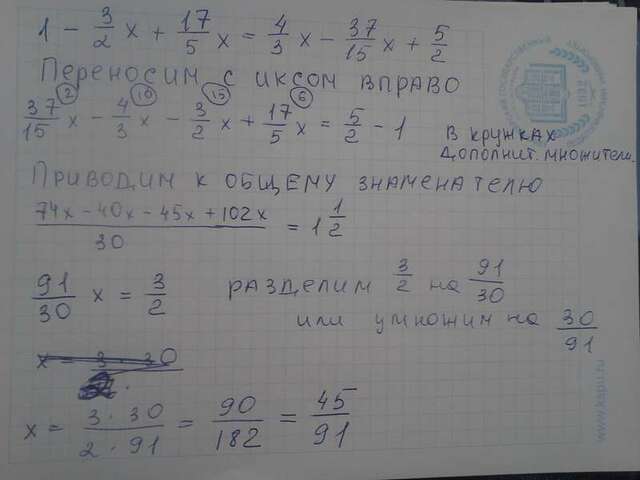 1 - 3/2 x + 17/5 x = 4/3 x - 37/15 x + 5/2
Переносим с иксом вправо
37/15 (2) x - 4/3 (10) x - 3/2 (15) x + 17/5 (6) x = 5/2 - 1
В кружках
дополнит. множители.
Приводим к общему знаменателю
(74x - 40x - 45x + 102x)/30 = 1 1/2
91/30 x = 3/2 разделим 3/2 на 91/30
или умножим на 30/91
x = 3·30
x = (3·30)/(2·91) = 90/182 = 45/91
www.kapu.ru